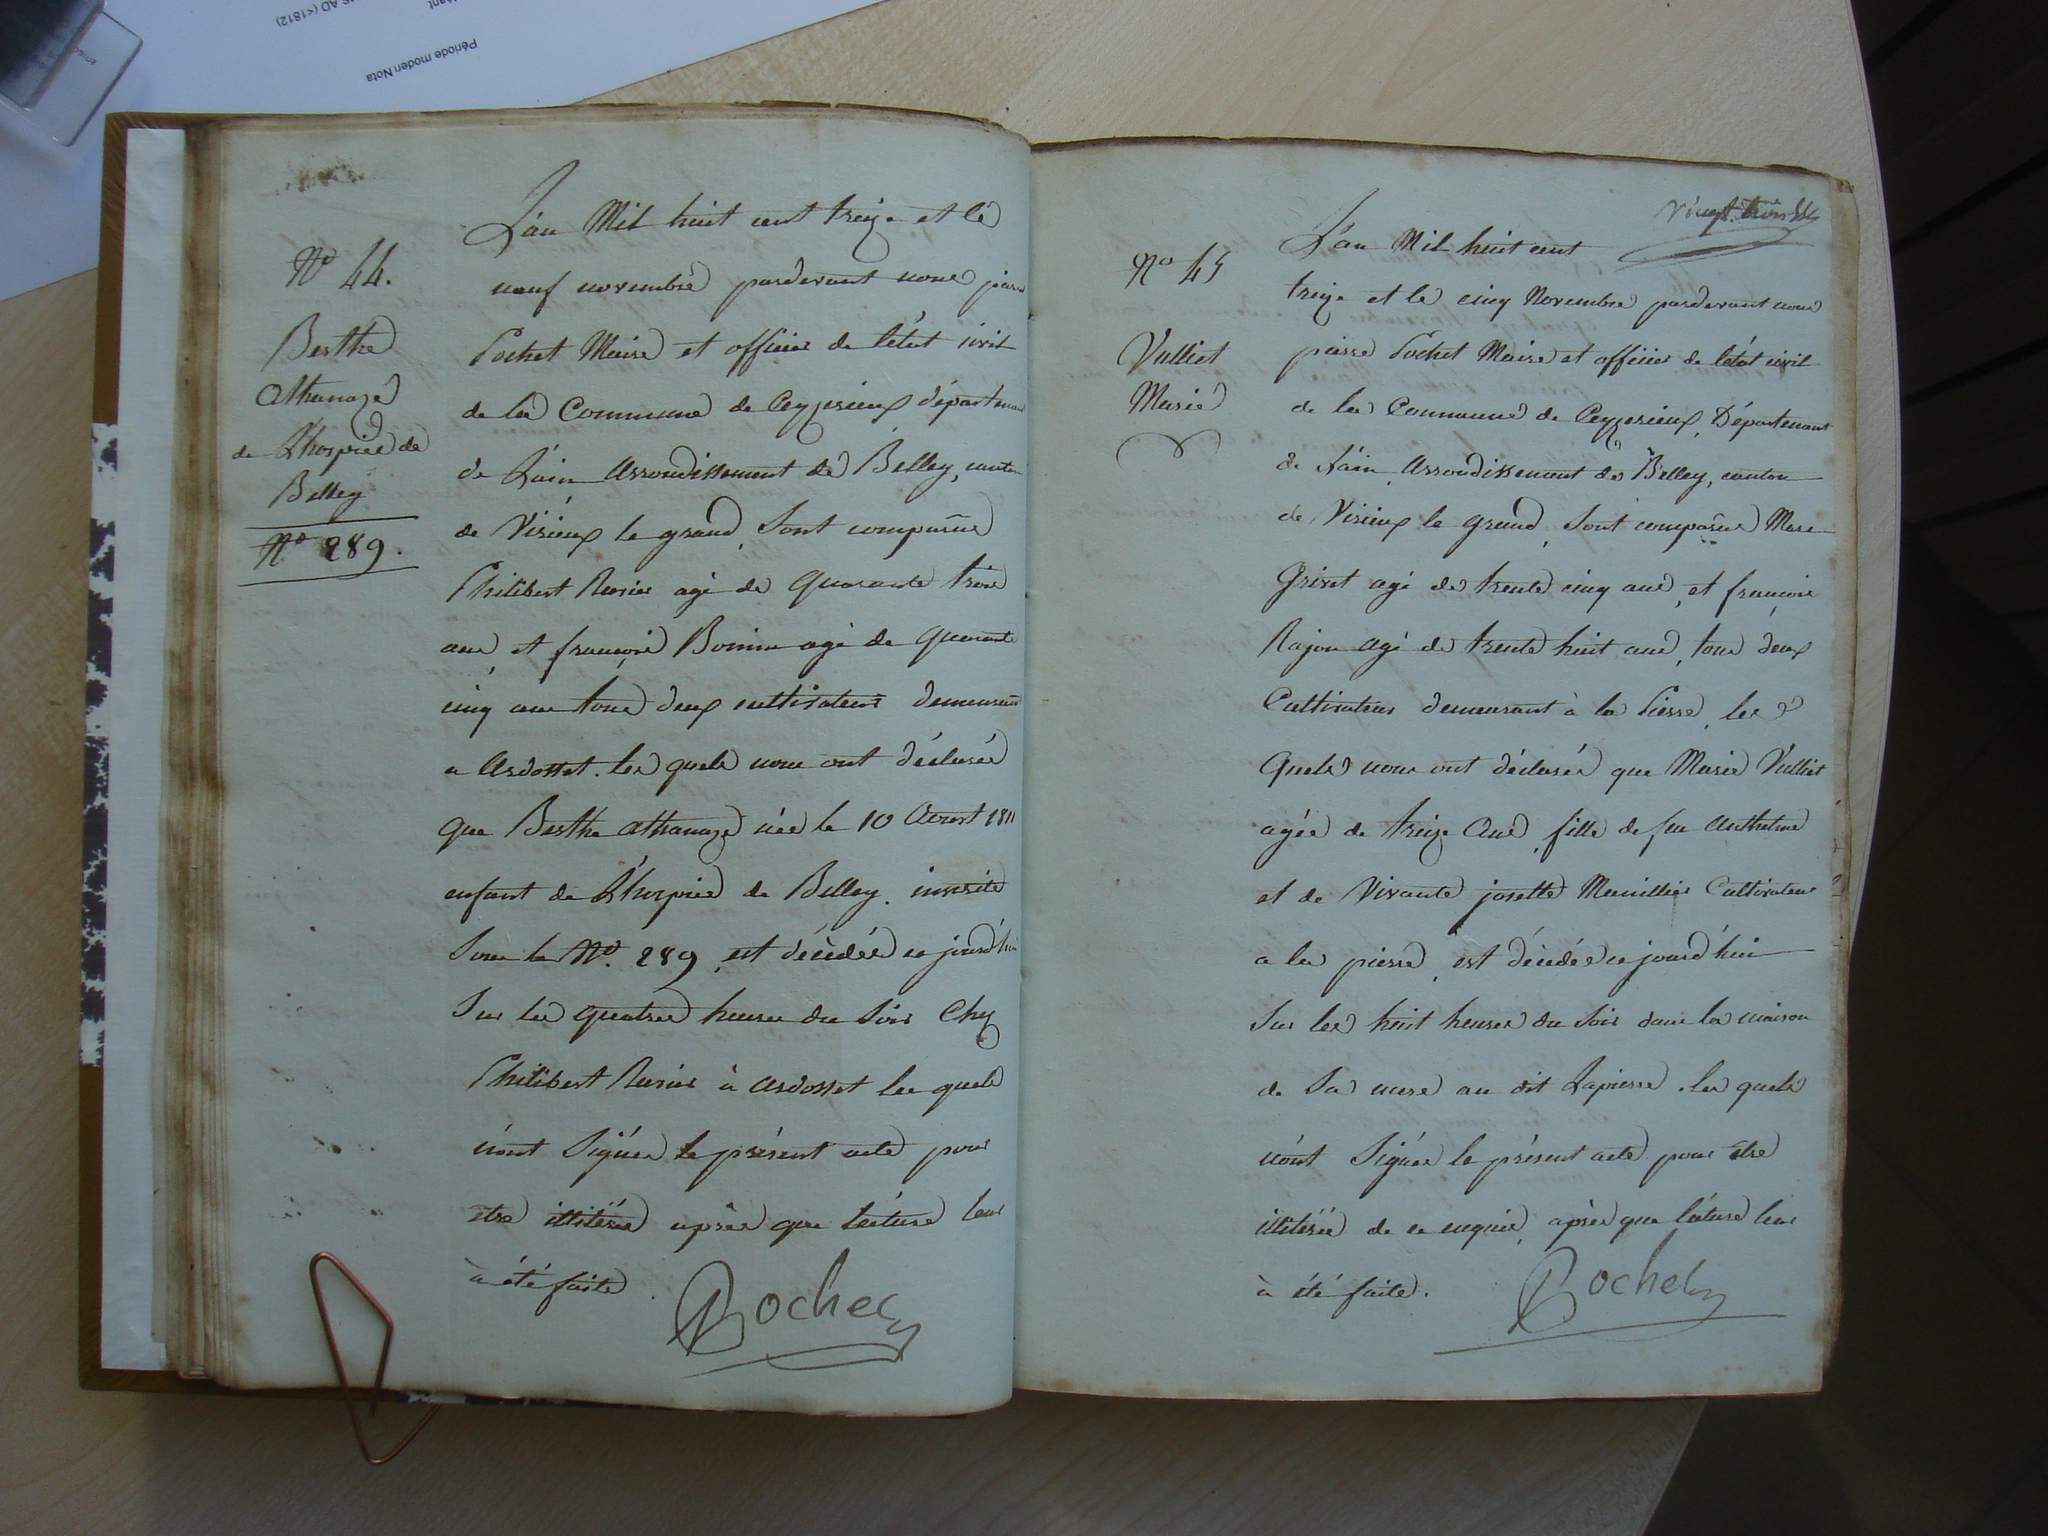 Période moden Nota
AD (<1812)
N° 44.
Berthe
Athanaze
de L'hospice de
Belley
N° 289.
L'an Mil huit cent treize et le
neuf novembre pardevant nous
Pochet Maire et officier de l'état civil
de la Commune de Ceyzerieux départem
de L'ain Arrondissement de Belley, canton
de Virieux le grand, sont comparus
Philibert Rurier agé de quarante trois
ans, et françois Bonin agé de quarante
cinq ans tous deux cultivateurs demeurant
a Ardosset. les quels nous ont déclarés
que Berthe Athanaze née le 10 Aoust 1811
enfant de L'hospice de Belley. inscrite
Sous le N°. 289, est décédée ce jourd'hui
Sur les quatres heures du Soir Chez
Philibert Rurier à Ardosset les quels
n'ont Signés le présent acte pour
etre illitérés après que lecture leur
à été faite.
Pochet
vingt trois
N° 45
Vulliet
Marie
L'an Mil huit cent
treize et le cinq Novembre pardevant nous
pierre Pochet Maire et officier de l'état civil
de la Commune de Ceyzerieux, Département
de L'ain, Arrondissement de Belley, canton
de Virieux le grand, Sont comparus Marc
Grivet agé de trente cinq ans, et françois
Rajon agé de trente huit ans, tous deux
Cultivateurs demeurant à la Pierre, les
Quels nous ont déclarés que Marie Vulliet
agée de treize Ans, fille de feu Anthelme
et de Vivante josette Cultivateur
a la pierre, est décédée ce jourd'hui
Sur les huit heures du Soir dans la maison
de Sa mere au dit Lapierre. les quels
n'ont Signés le présent acte pour être
illitérés de ce enquis, après que lecture leur
à été faite.
Pochet